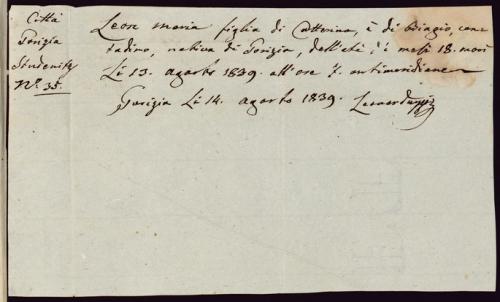 Città
Gorizia
Studenitz
Nº. 35.
Leon maria figlia di Catterina, è di Biagio, con-
tadino, nativa di Gorizia, dell'età, di mesi 18. morì
Li 13. agosto 1839. all'ore 7. antimeridiane
Gorizia Li 14. agosto 1839.